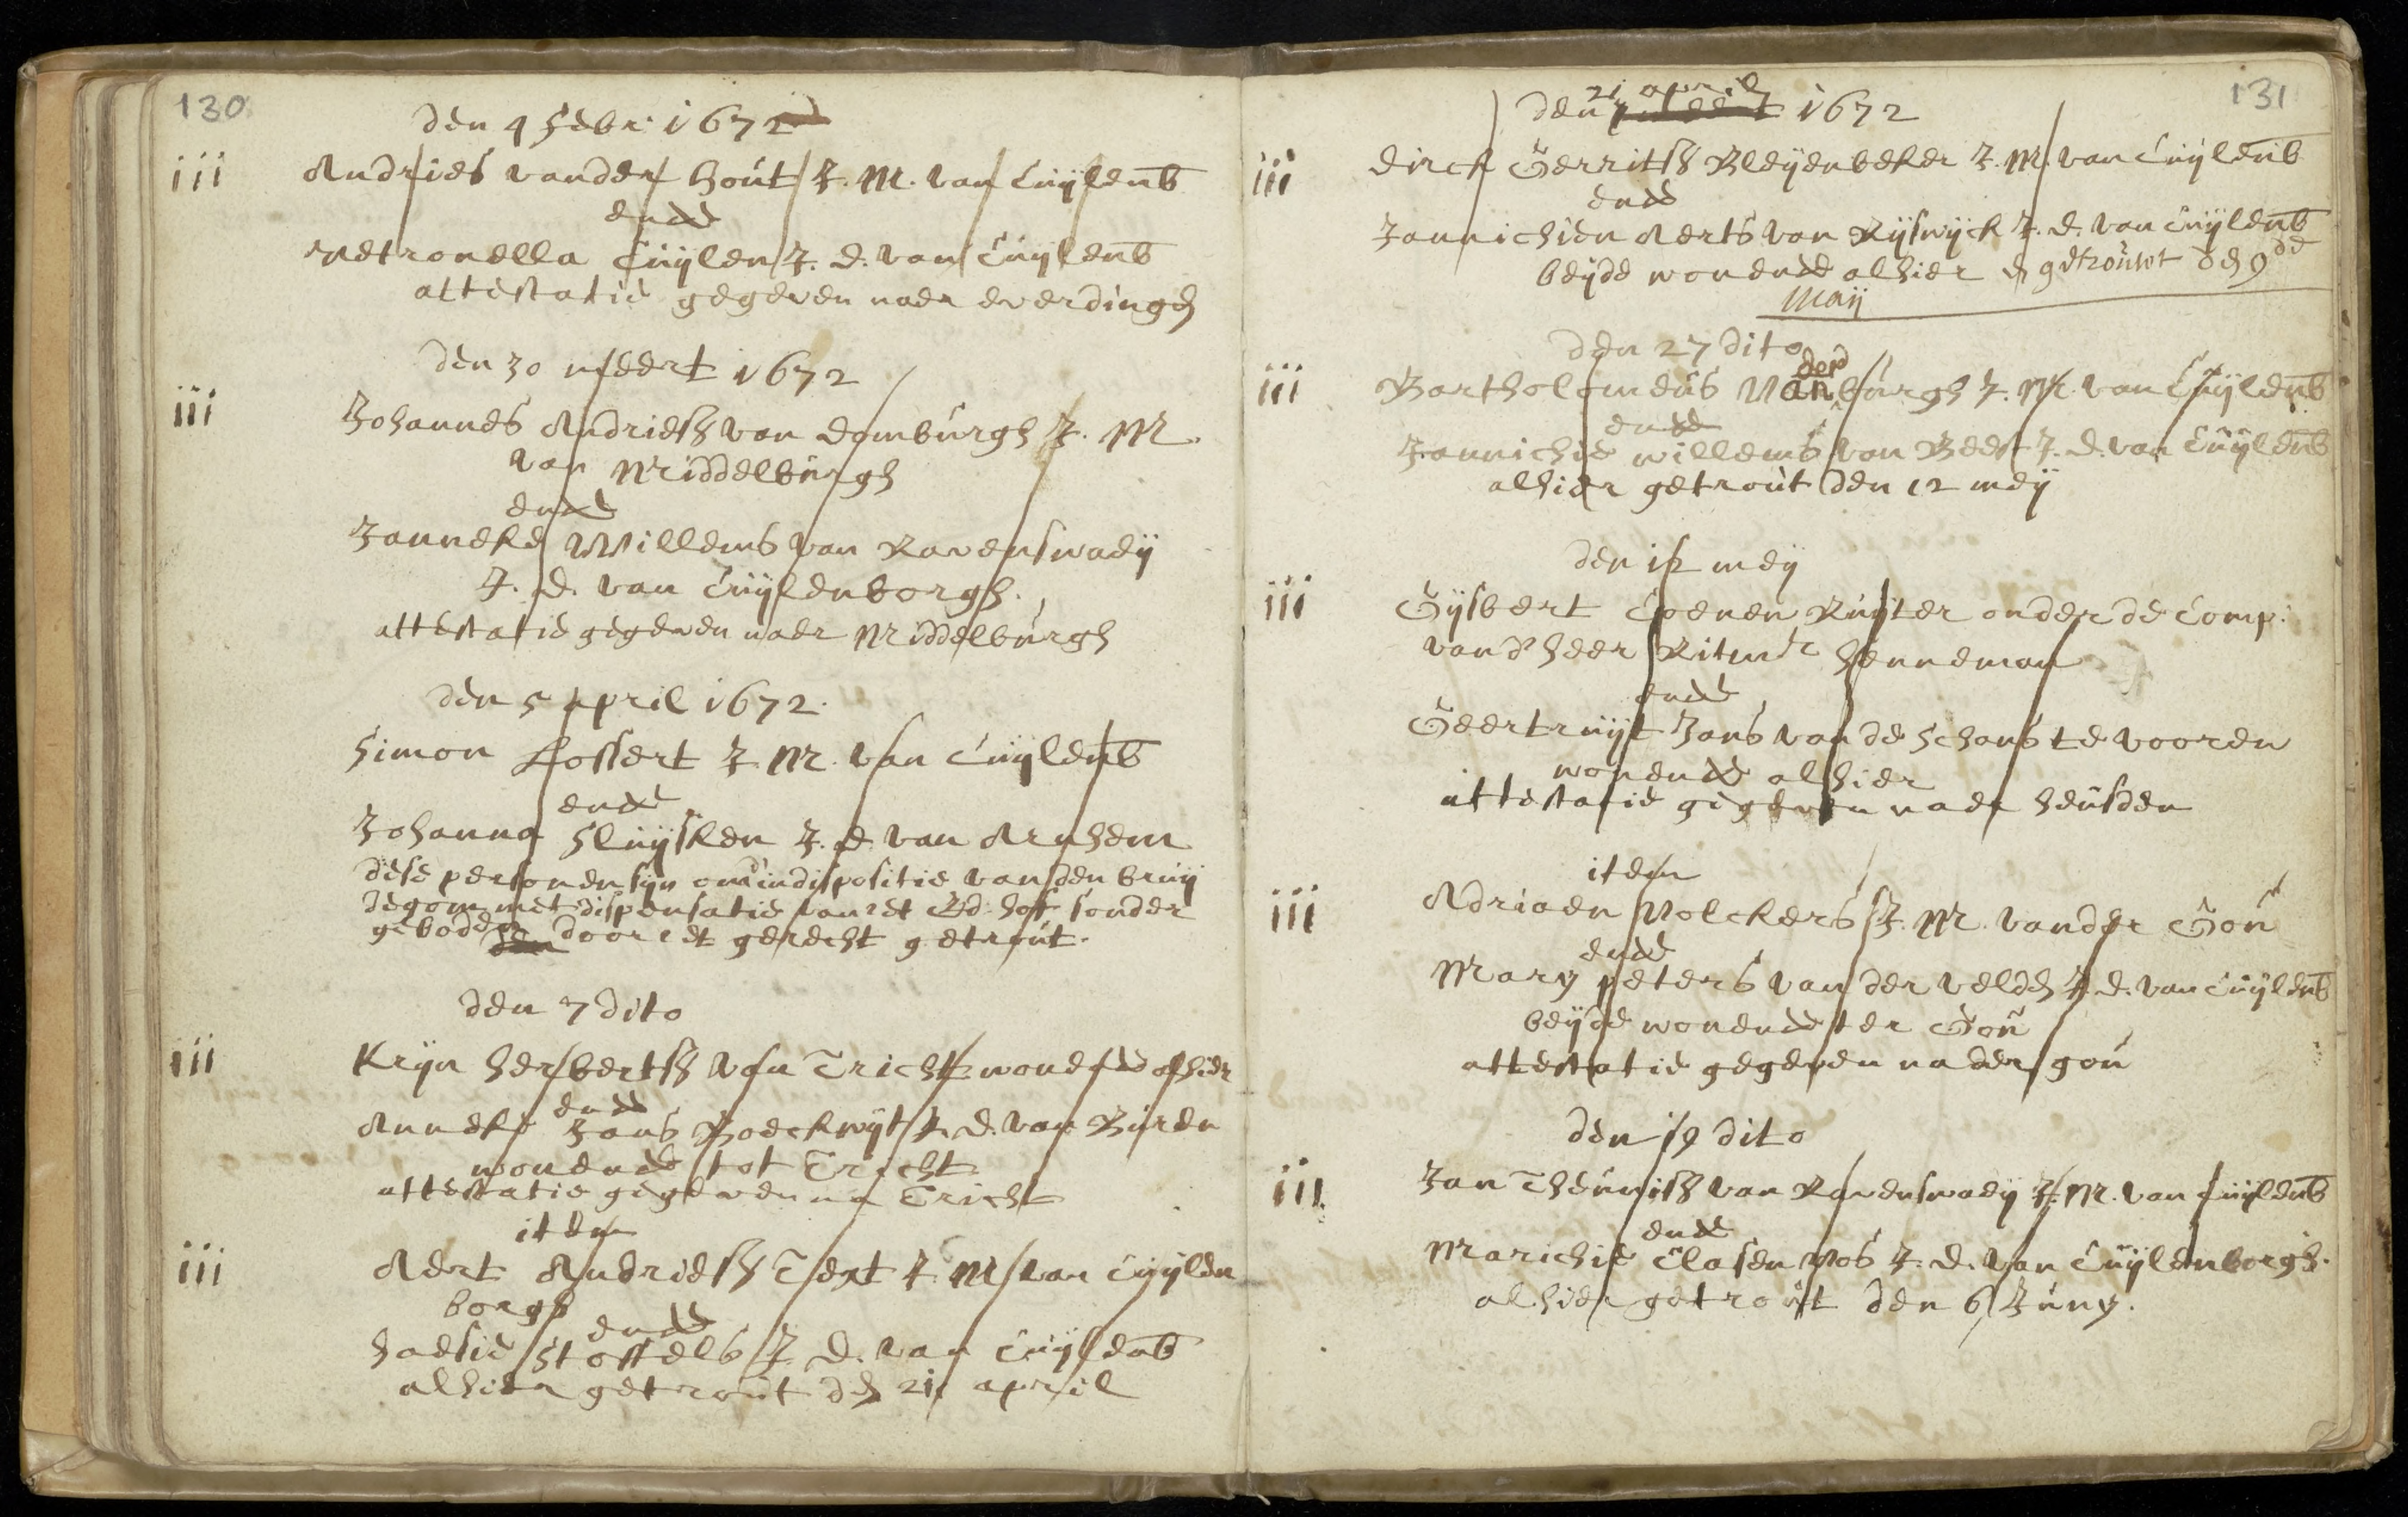 130
den 4 Febr. 1672
iii Andries vander Hout J. M. van Cuijlenb
ende
Petronella Cuijlen J. D. van Cuijlenb
attestatie gegeven naer everdingen
den 30 meert 1672
iii Johannes Andriesz van Domburgh J. M.
van Middelburgh
ende
Janneke Willems van Ravenswaeij
J. D. van Cuijlenborgh.
attestatie gegeven naer Middelburgh
den 5 april 1672.
Simon Lossert J. M. van Cuijlenb
ende
Johanna Sluijsken J. D. van Arnhem
dese personen sijn om d'indispositie van den bruij
degom met dispensatie van et Ed. hof sonder
geboden door et gerecht getrout.
den 7 dito
iii Krijn herbertsz van Tricht wonende alhier
ende
Anneke Jans Boeckwijt J. D. van Buren
wonende tot Tricht
attestatie gegeven na Tricht
item
iii Aert Andriesz Tert J. M. van Cuijlen
borgh
ende
haesie Stoffels J. D. van Cuijlenb
alhier getrout den 21 april
131
21 april
den meert 1672
iii Dirck Gerritsz Bleijenbeker J. M. van Cuijlenb
ende
Jannichien Aerts van Rijswijck J. D. van Cuijlenb
beijde wonende alhier en getrouwt den 9de
Maij
den 27 dito
der
iii Bartholomeus Van burgh J. M. van Cuijlenb
ende
Jannichie willems van Beest J. D. van Cuijlenb
alhier getrout den 12 meij
den 12 meij
iii Gijsbert Coenen Ruijter onder de Comp.
vand heer Ritmr Henneman
ende
Geertruijt Jans van de Schans te vooren
wonende alhier
attestatie gegeven naer heusden
item
iii Adriaen Volckers J. M. vander Gou
ende
Mary peters van der velden J. D. van Cuijlenb
beijde wonende ter Gou
attestatie gegeven na der gou
den 19 dito
iii Jan Theunisz van Ravenswaeij J. M. van Cuijlenb
ende
Marichie Clasen Vos J. D. van Cuijlenborgh.
alhier getrout den 6 Juny.